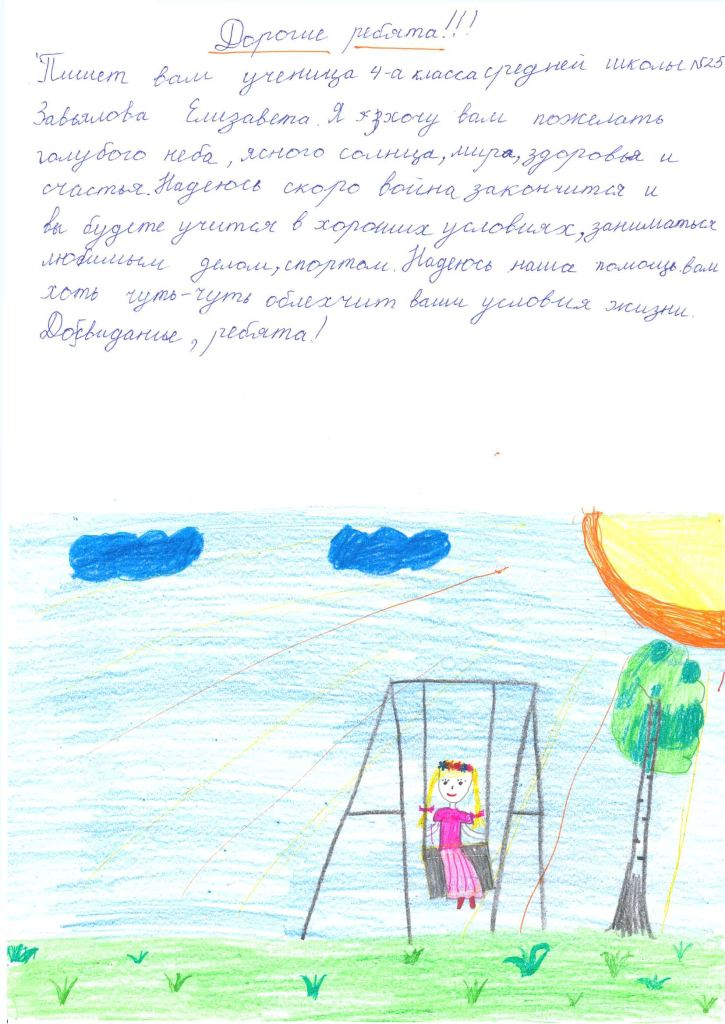 Дорогие ребята!!!
Пишет вам ученица 4-а класса средней школы №25
Завьялова Елизавета. Я хочу вам пожелать
голубого неба, ясного солнца, мира, здоровья и
счастья. Надеюсь скоро война закончится и
вы будете учится в хороших условиях, заниматься
любимым делом, спортом. Надеюсь наша помощь вам
хоть чуть-чуть облехчит ваши условия жизни.
Досвиданье, ребята!